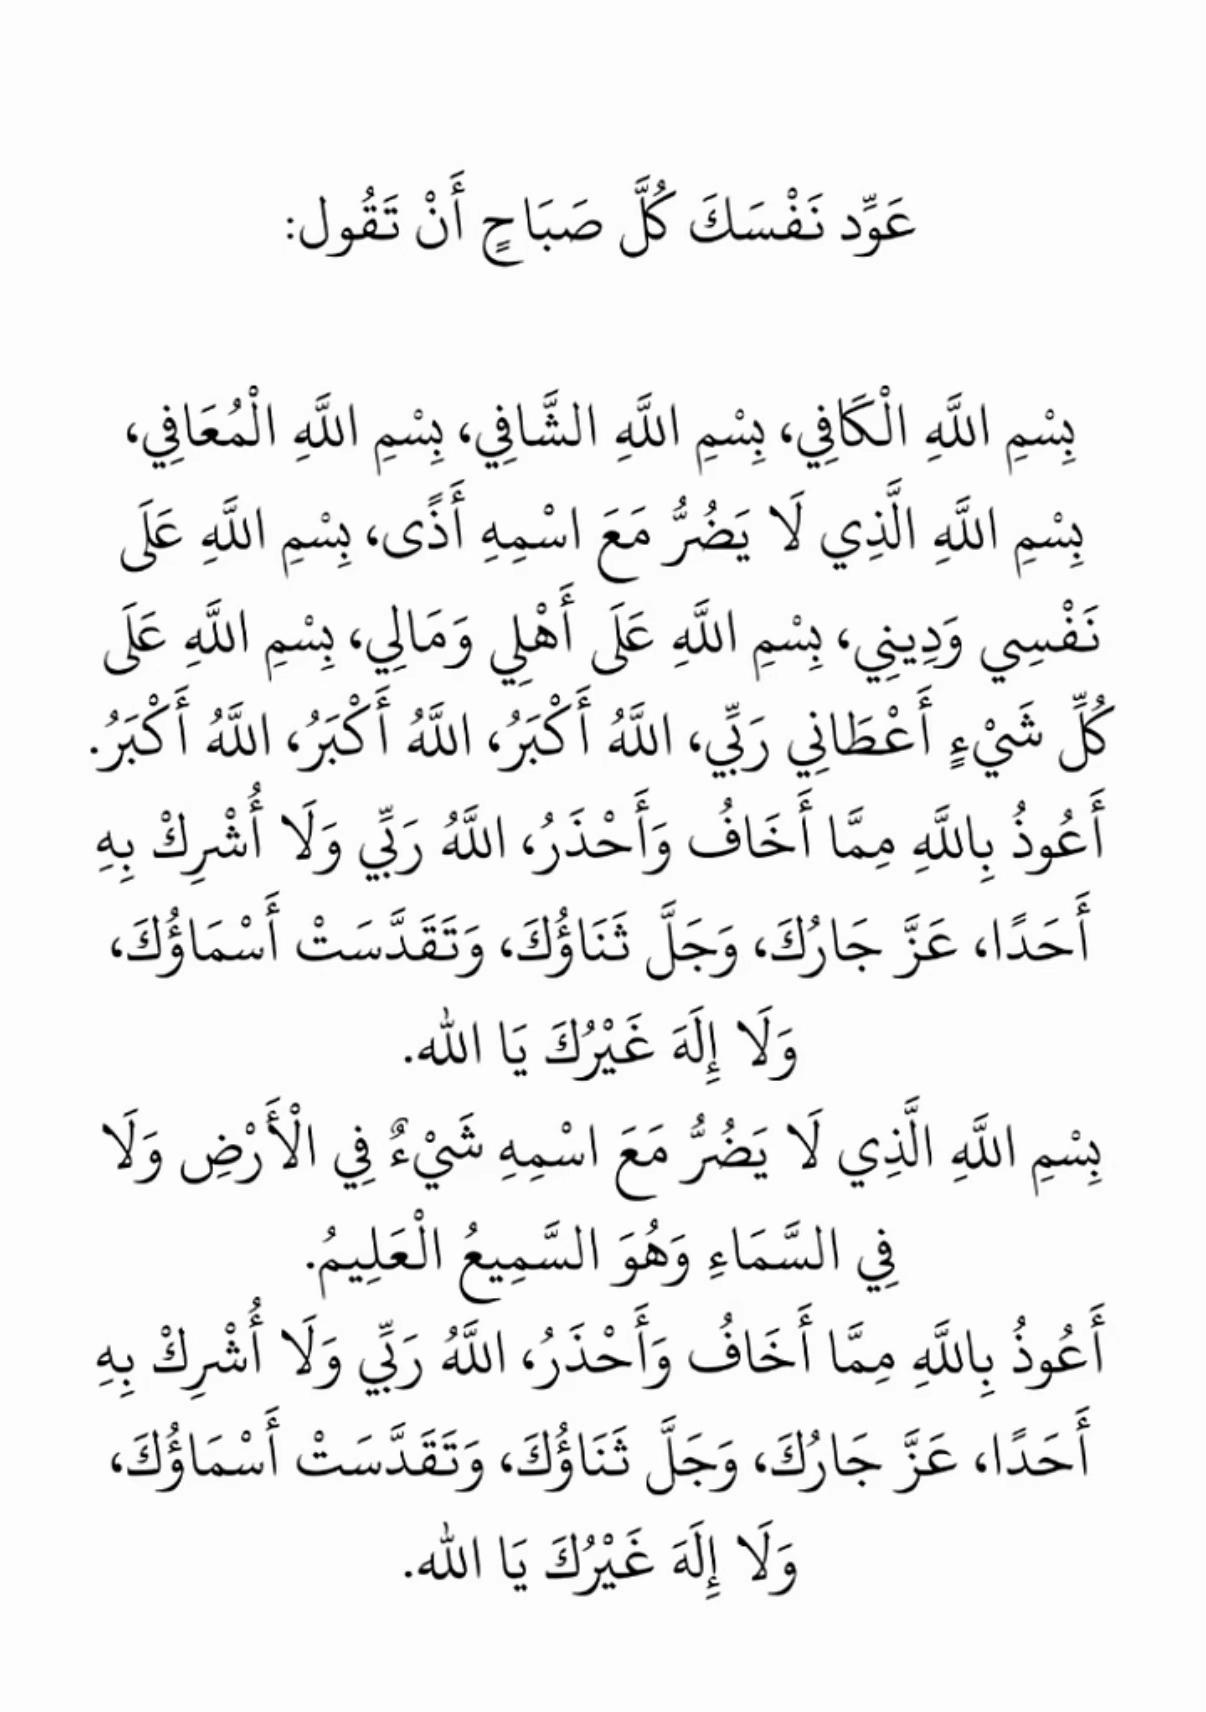 عَوِّد نَفْسَكَ كُلَّ صَبَاحٍ أَنْ تَقُول:
بِسْمِ اللَّهِ الْكَافِي، بِسْمِ اللَّهِ الشَّافِي، بِسْمِ اللَّهِ الْمُعَافِي،
بِسْمِ اللَّهِ الَّذِي لَا يَضُرُّ مَعَ اسْمِهِ أَذًى، بِسْمِ اللَّهِ عَلَى
نَفْسِي وَدِينِي، بِسْمِ اللَّهِ عَلَى أَهْلِي وَمَالِي، بِسْمِ اللَّهِ عَلَى
كُلِّ شَيْءٍ أَعْطَانِي رَبِّي، اللَّهُ أَكْبَرُ، اللَّهُ أَكْبَرُ، اللَّهُ أَكْبَرُ.
أَعُوذُ بِاللَّهِ مِمَّا أَخَافُ وَأَحْذَرُ، اللَّهُ رَبِّي وَلَا أُشْرِكْ بِهِ
أَحَدًا، عَزَّ جَارُكَ، وَجَلَّ ثَنَاؤُكَ، وَتَقَدَّسَتْ أَسْمَاؤُكَ،
وَلَا إِلَهَ غَيْرُكَ يَا الله.
بِسْمِ اللَّهِ الَّذِي لَا يَضُرُّ مَعَ اسْمِهِ شَيْءٌ فِي الْأَرْضِ وَلَا
فِي السَّمَاءِ وَهُوَ السَّمِيعُ الْعَلِيمُ.
أَعُوذُ بِاللَّهِ مِمَّا أَخَافُ وَأَحْذَرُ، اللَّهُ رَبِّي وَلَا أُشْرِكْ بِهِ
أَحَدًا، عَزَّ جَارُكَ، وَجَلَّ ثَنَاؤُكَ، وَتَقَدَّسَتْ أَسْمَاؤُكَ،
وَلَا إِلَهَ غَيْرُكَ يَا الله.